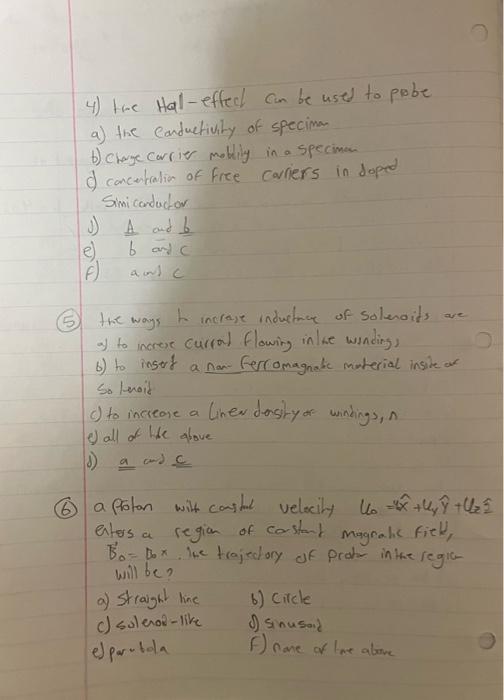 4) the Hal-effect can be used to probe
a) the conductivity of speciman
b) charge carrier moblity in a speciman
c) concentration of free carriers in doped
Simi conductor
d) A and b
e) b and c
f) a and c
5) the ways to increase inductance of solenoids are
a) to increse current flowing in the windings
b) to insert a non ferromagnatic material inside of
solenoid
c) to increase a linear density of windings, n
e) all of the above
d) a and c
6) a proton with constant velocity U₀ = Uₓx̂ + Uᵧŷ + U_z ẑ
enters a region of constant magnatic field,
B₀ = B₀ x. The trajectory of proton in the region
will be?
a) Straight line b) Circle
c) solenoid-like d) sinusoid
e) parabola f) none of the above